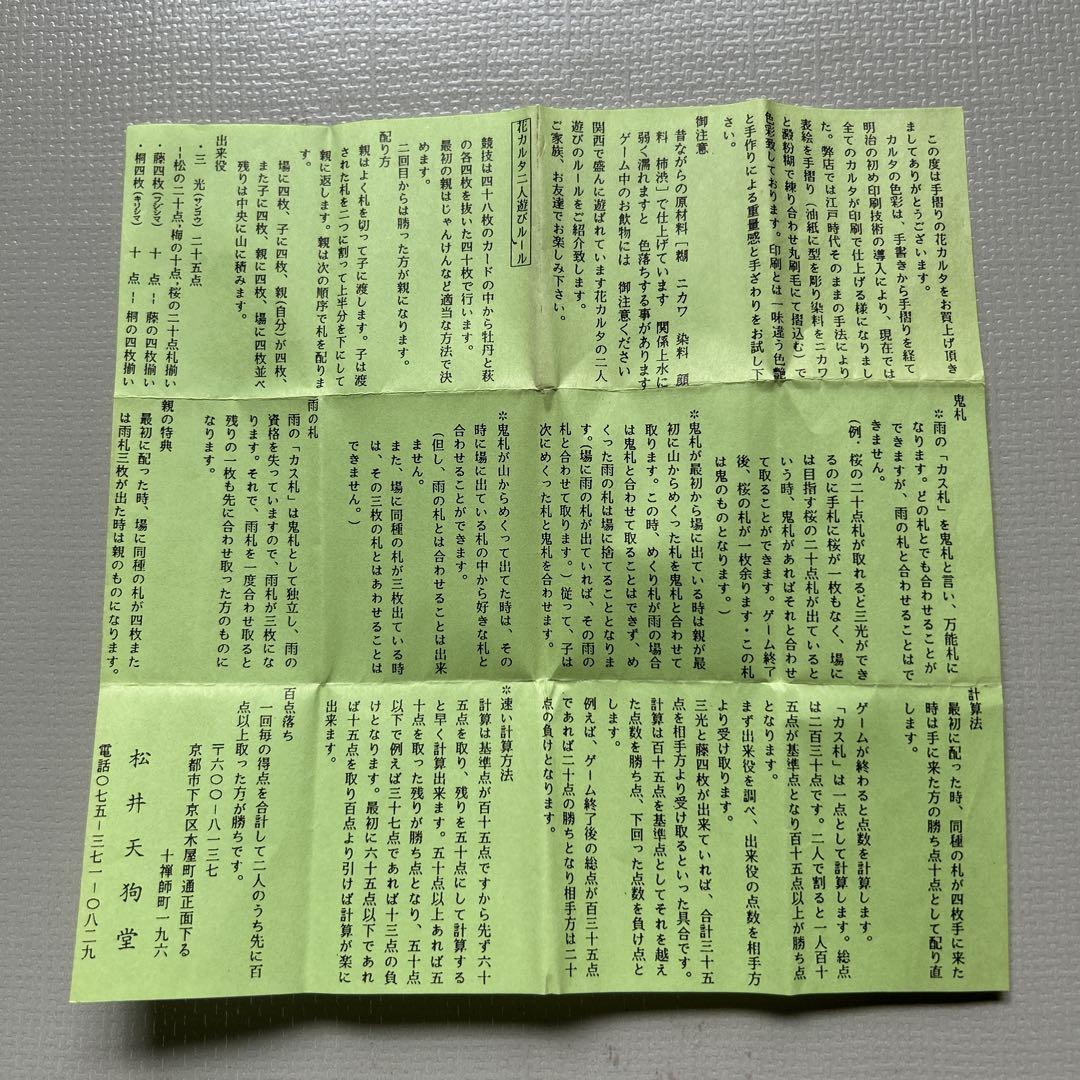 この度は手摺りの花カルタをお買上げ頂き
ましてありがとうございます。
カルタの色彩は、手書きから手摺りを経て
明治の初め印刷技術の導入により、現在では
全てのカルタが印刷で仕上げる様になりまし
た。弊店では江戸時代そのままの手法により
表絵を手摺り(油紙に型を彫り染料をニカワ
と澱粉糊で練り合わせ丸刷毛にて摺込む)で
色彩致しております。印刷とは一味違う色艶
と手作りによる重量感と手ざわりをお試し下
さい。
御注意
昔ながらの原材料[糊 ニカワ 染料 顔
料 柿渋]で仕上げています 関係上水に
弱く濡れますと 色落ちする事があります
ゲーム中のお飲物には 御注意ください
関西で盛んに遊ばれています花カルタの二人
遊びのルールをご紹介致します。
ご家族、お友達でお楽しみ下さい。
花カルタ二人遊びルール
競技は四十八枚のカードの中から牡丹と萩
の各四枚を抜いた四十枚で行います。
最初の親はじゃんけんなど適当な方法で決
めます。
二回目からは勝った方が親になります。
配り方
親はよく札を切って子に渡します。子は渡
された札を二つに割って上半分を下にして
親に返します。親は次の順序で札を配りま
す。
場に四枚、子に四枚、親(自分)が四枚、
また子に四枚、親に四枚、場に四枚並べ
残りは中央に山に積みます。
出来役
・三 光(サンコウ)二十五点
-松の二十点・梅の十点・桜の二十点札揃い
・藤四枚(フジシマ) 十 点-藤の四枚揃い
・桐四枚(キリシマ) 十 点-桐の四枚揃い
鬼札
※雨の「カス札」を鬼札と言い、万能札に
なります。どの札とでも合わせることが
できますが、雨の札と合わせることはで
きません。
(例・桜の二十点札が取れるど三光ができ
るのに手札に桜が一枚もなく、場に
は目指す桜の二十点札が出ていると
いう時、鬼札があればそれと合わせ
て取ることができます。ゲーム終了
後、桜の札が一枚余ります・この札
は鬼のものとなります。)
※鬼札が最初から場に出ている時は親が最
初に山からめくった札を鬼札と合わせて
取ります。この時、めくり札が雨の場合
は鬼札と合わせて取ることはできず、め
くった雨の札は場に捨てることとなりま
す。(場に雨の札が出ていれば、その雨の
札と合わせて取ります。)従って、子は
次にめくった札と鬼札を合わせます。
※鬼札が山からめくって出てた時は、その
時に場に出ている札の中から好きな札と
合わせることができます。
(但し、雨の札とは合わせることは出来
ません。
また、場に同種の札が三枚出ている時
は、その三枚の札とはあわせることは
できません。)
雨の札
雨の「カス札」は鬼札として独立し、雨の
資格を失っていますので、雨札が三枚にな
ります。それで、雨札を一度合わせ取ると
残りの一枚も先に合わせ取った方のものに
なります。
親の特典
最初に配った時、場に同種の札が四枚また
は雨札三枚が出た時は親のものになります。
計算法
最初に配った時、同種の札が四枚手に来た
時は手に来た方の勝ち点十点として配り直
します。
ゲームが終わると点数を計算します。
「カス札」は一点として計算します。総点
は二百三十点です。二人で割ると一人百十
五点が基準点となり百十五点以上が勝ち点
となります。
まず出来役を調べ、出来役の点数を相手方
より受け取ります。
三光と藤四枚が出来ていれば、合計三十五
点を相手方より受け取るといった具合です。
計算は百十五点を基準点としてそれを越え
た点数を勝ち点、下回った点数を負け点と
します。
例えば、ゲーム終了後の総点が百三十五点
であれば二十点の勝ちとなり相手方は二十
点の負けとなります。
※速い計算方法
計算は基準点が百十五点ですから先ず六十
五点を取り、残りを五十点にして計算する
と早く計算出来ます。五十点以上あれば五
十点を取った残りが勝ち点となり、五十点
以下で例えば三十七点であれば十三点の負
けとなります。最初に六十五点以下であれ
ば十五点を取り百点より引けば計算が楽に
出来ます。
百点落ち
一回毎の得点を合計して二人のうち先に百
点以上取った方が勝ちです。
〒六〇〇-八一三七
京都市下京区木屋町通正面下る
十禅師町一九六
松井天狗堂
電話〇七五-三七一-〇八二九